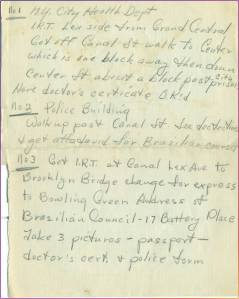 No 1 N.Y. City Health Dept
I.R.T. Lex side from Grand Central
Get off Canal St walk to Center
which is one block away then down
Center St about a block past city prison
Have doctor's certicate O.K'd
No 2 Police Building
Walk up past Canal St. See detectives
& get affidavid for Brazilian council
No 3 Get I.R.T. at Canal Lex Ave to
Brooklyn Bridge change for express
to Bowling Green Address of
Brazilian Council-17 Battery Place
Take 3 pictures - passport -
doctor's cert. & police form